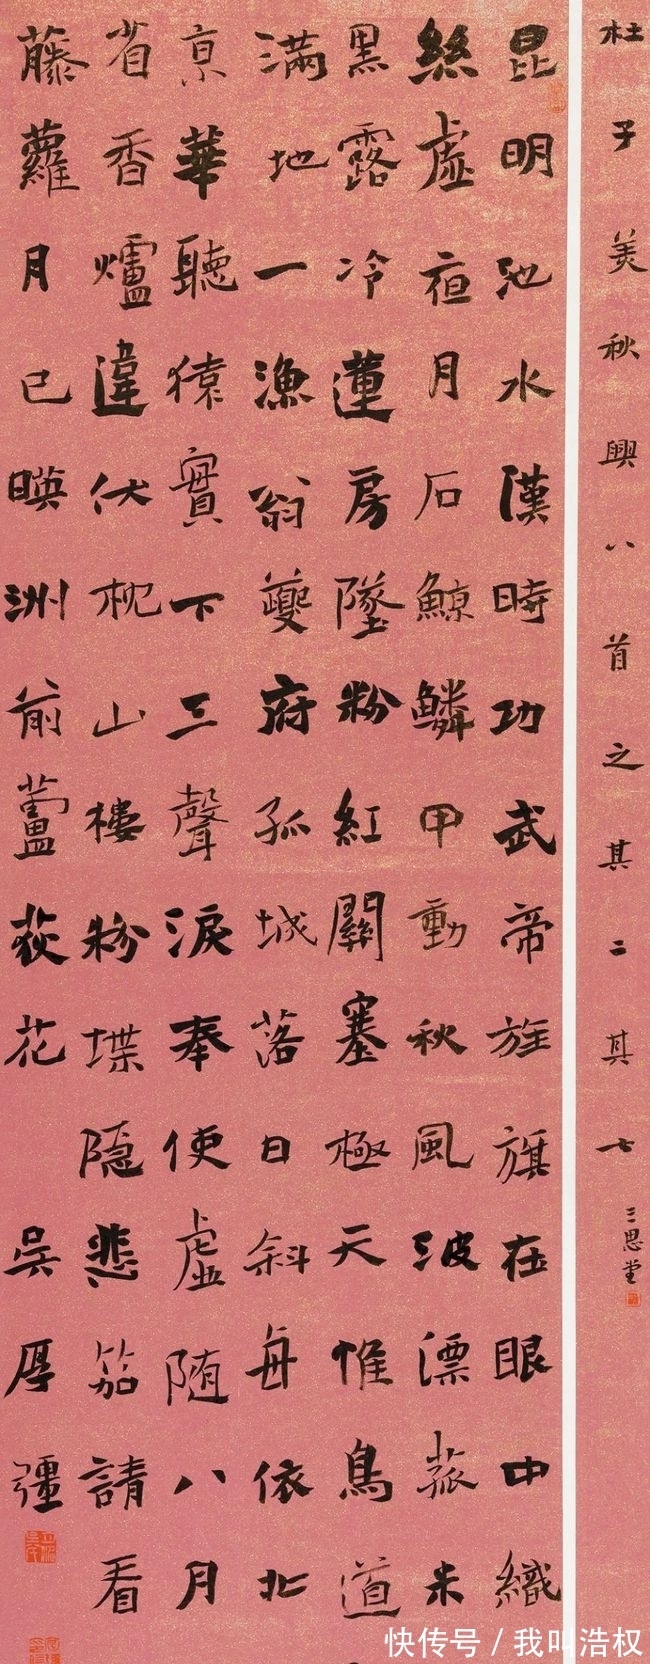 杜子美秋興八首之其二其七
三思堂
昆明池水漢時功武帝旌旗在眼中織
絲虛夜月石鯨鱗甲動秋風波漂菰米
黑露冷蓮房墜粉紅關塞極天惟鳥道
滿地一漁翁夔府孤城落日斜每依北
京華聽猿實下三聲淚奉使虛随八月
省香爐違伏枕山樓粉堞隱悲笳請看
藤蘿月已暎洲前蘆荻花
吳厚彊
快传号 / 我叫浩权